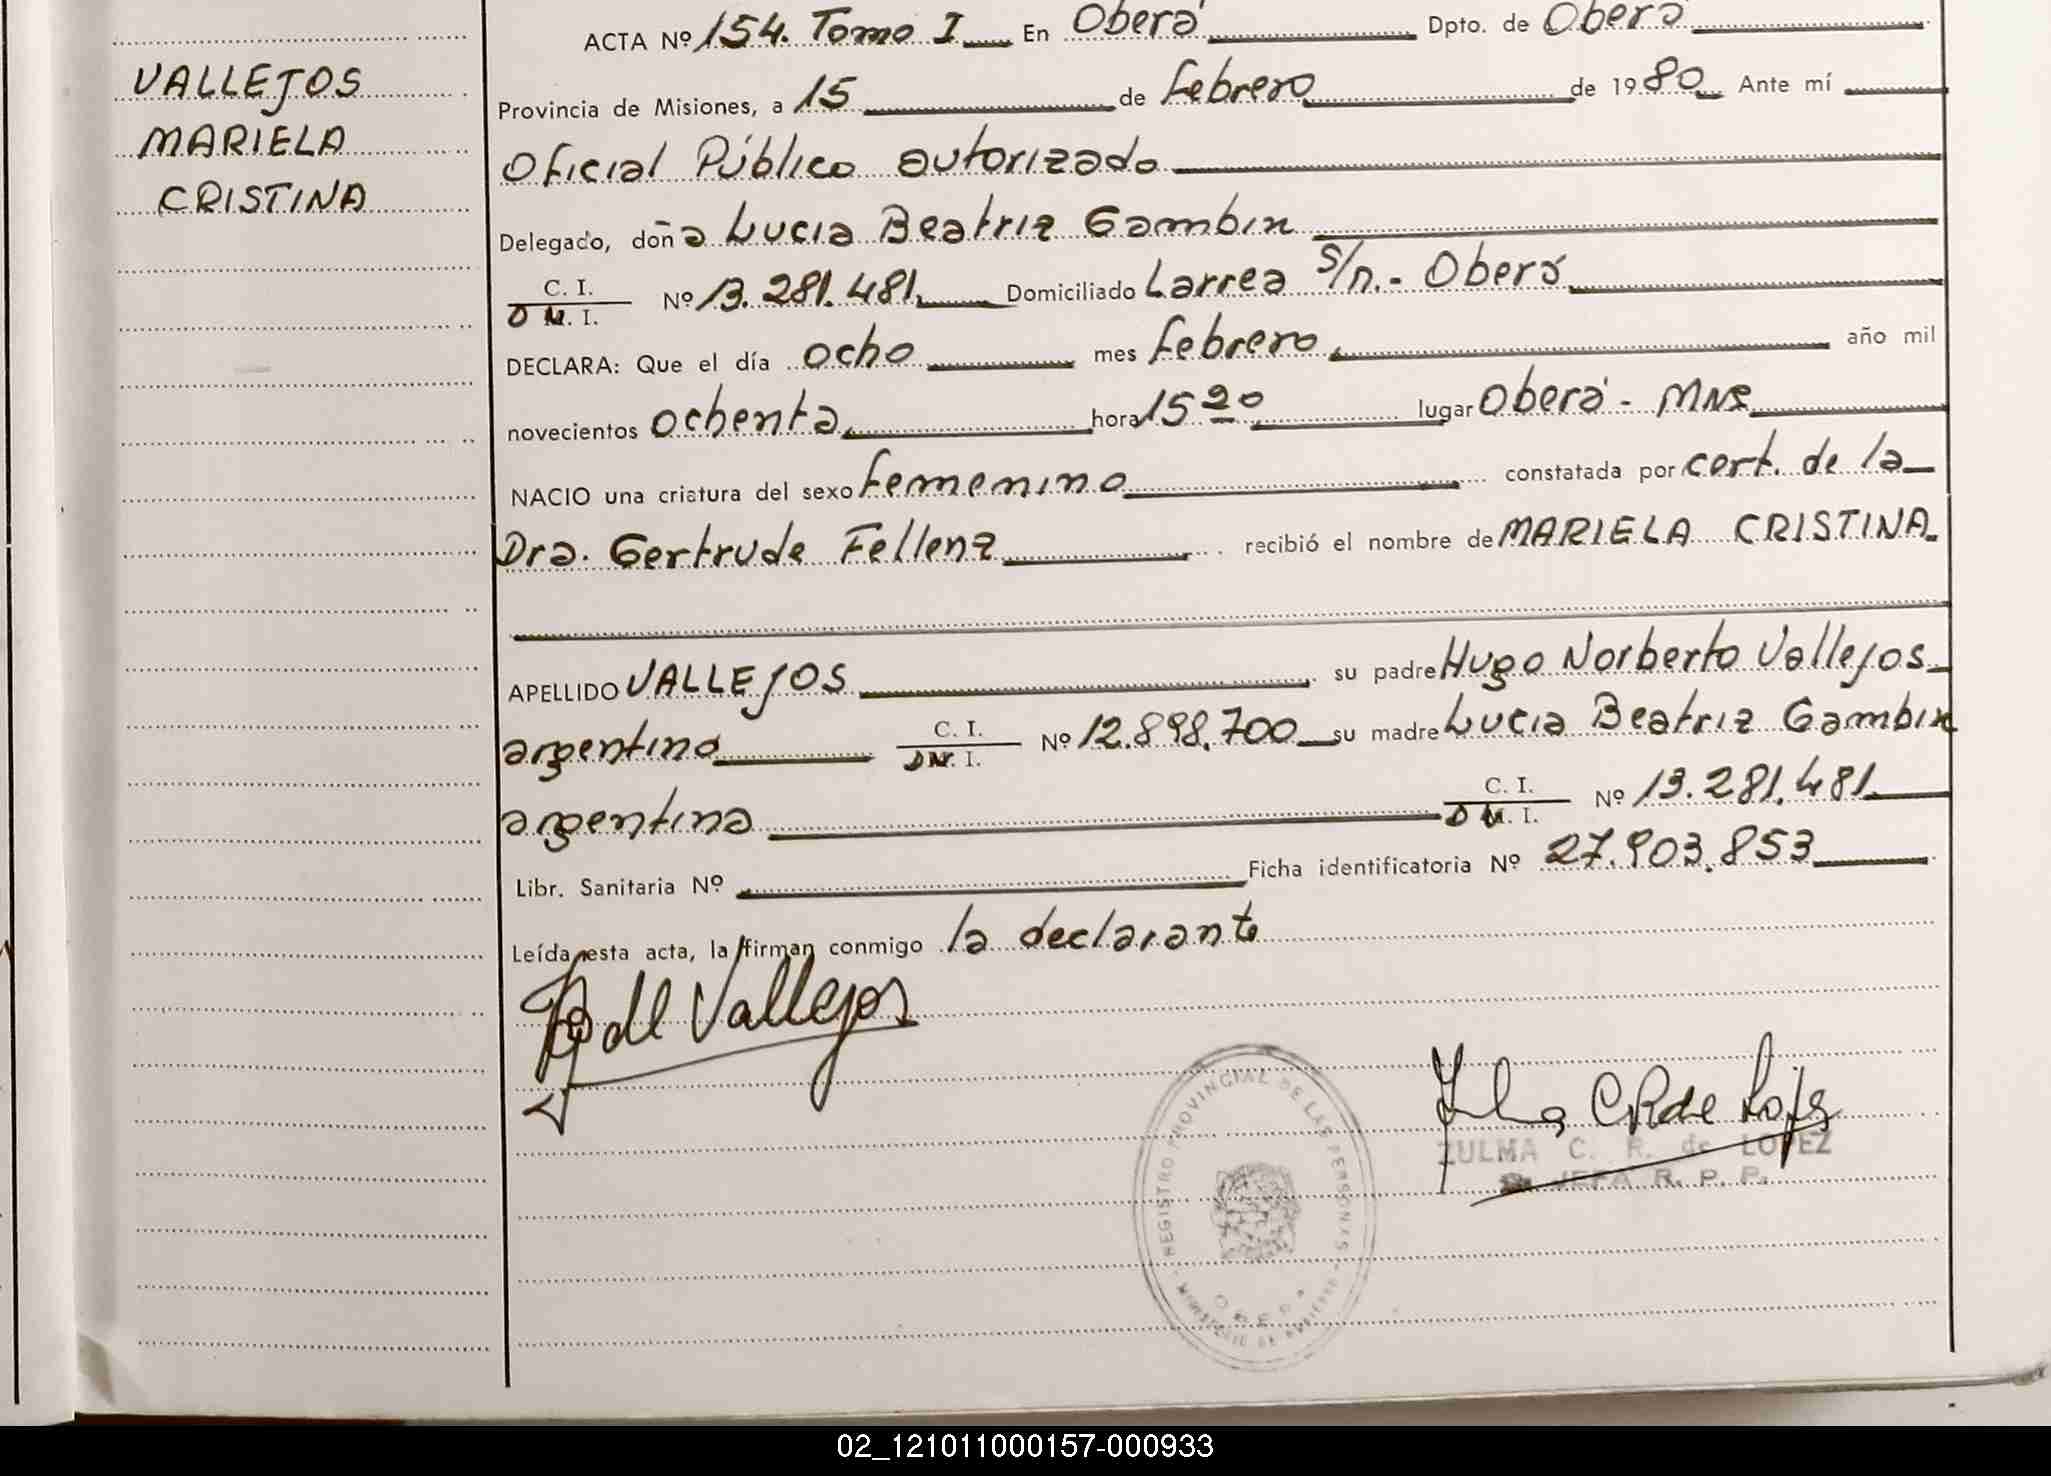 VALLEJOS
MARIELA
CRISTINA
ACTA Nº 154. Tomo I En Oberá Dpto. de Oberá
Provincia de Misiones, a 15 de Febrero de 1980 Ante mí
Oficial Público autorizado
Delegado, doña Lucia Beatriz Gambin
C. I.
D N. I. Nº 13.281.481. Domiciliado Larrea s/n.- Oberá
DECLARA: Que el día ocho mes Febrero año mil
novecientos ochenta hora 15 20 lugar Oberá - Mnes
NACIO una criatura del sexo Femenino constatada por cert. de la
Dra. Gertrude Fellenz recibió el nombre de MARIELA CRISTINA.
APELLIDO VALLEJOS su padre Hugo Norberto Vallejos
argentino C. I. D N. I. Nº 12.898.700 su madre Lucia Beatriz Gambin
argentina C. I. D N. I. Nº 13.281.481.
Libr. Sanitaria Nº Ficha identificatoria Nº 27.903.853
Leída esta acta, la firman conmigo la declarante
de Vallejos
REGISTRO PROVINCIAL DE LAS PERSONAS
MINISTERIO DE GOBIERNO
OBERA
Zulma C R de López
ZULMA C. R. de LOPEZ
JEFA R. P. P.
02_121011000157-000933